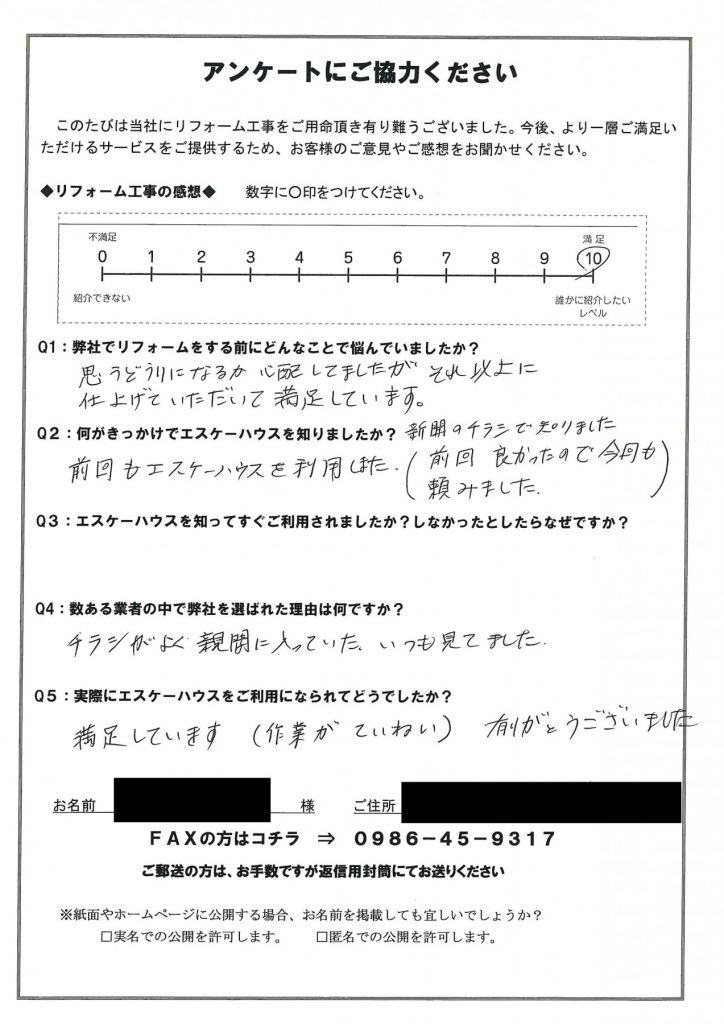 アンケートにご協力ください
このたびは当社にリフォーム工事をご用命頂き有り難うございました。今後、より一層ご満足い
ただけるサービスをご提供するため、お客様のご意見やご感想をお聞かせください。
◆リフォーム工事の感想◆ 数字に〇印をつけてください。
不満足 満足
0 1 2 3 4 5 6 7 8 9 10
紹介できない 誰かに紹介したい
レベル
Q1：弊社でリフォームをする前にどんなことで悩んでいましたか？
思うどうりになるか心配してましたがそれ以上に
仕上げていただいて満足しています。
Q2：何がきっかけでエスケーハウスを知りましたか？ 新聞のチラシで知りました
前回もエスケーハウスを利用しました.（前回 良かったので今回も
頼みました.）
Q3：エスケーハウスを知ってすぐご利用されましたか？しなかったとしたらなぜですか？
Q4：数ある業者の中で弊社を選ばれた理由は何ですか？
チラシがよく 新聞に入っていた、いつも見てました.
Q5：実際にエスケーハウスをご利用になられてどうでしたか？
満足しています （作業が ていねい） 有りがとうございました
お名前 様 ご住所
FAXの方はコチラ ⇒ 0986－45－9317
ご郵送の方は、お手数ですが返信用封筒にてお送りください
※紙面やホームページに公開する場合、お名前を掲載しても宜しいでしょうか？
□実名での公開を許可します。 □匿名での公開を許可します。